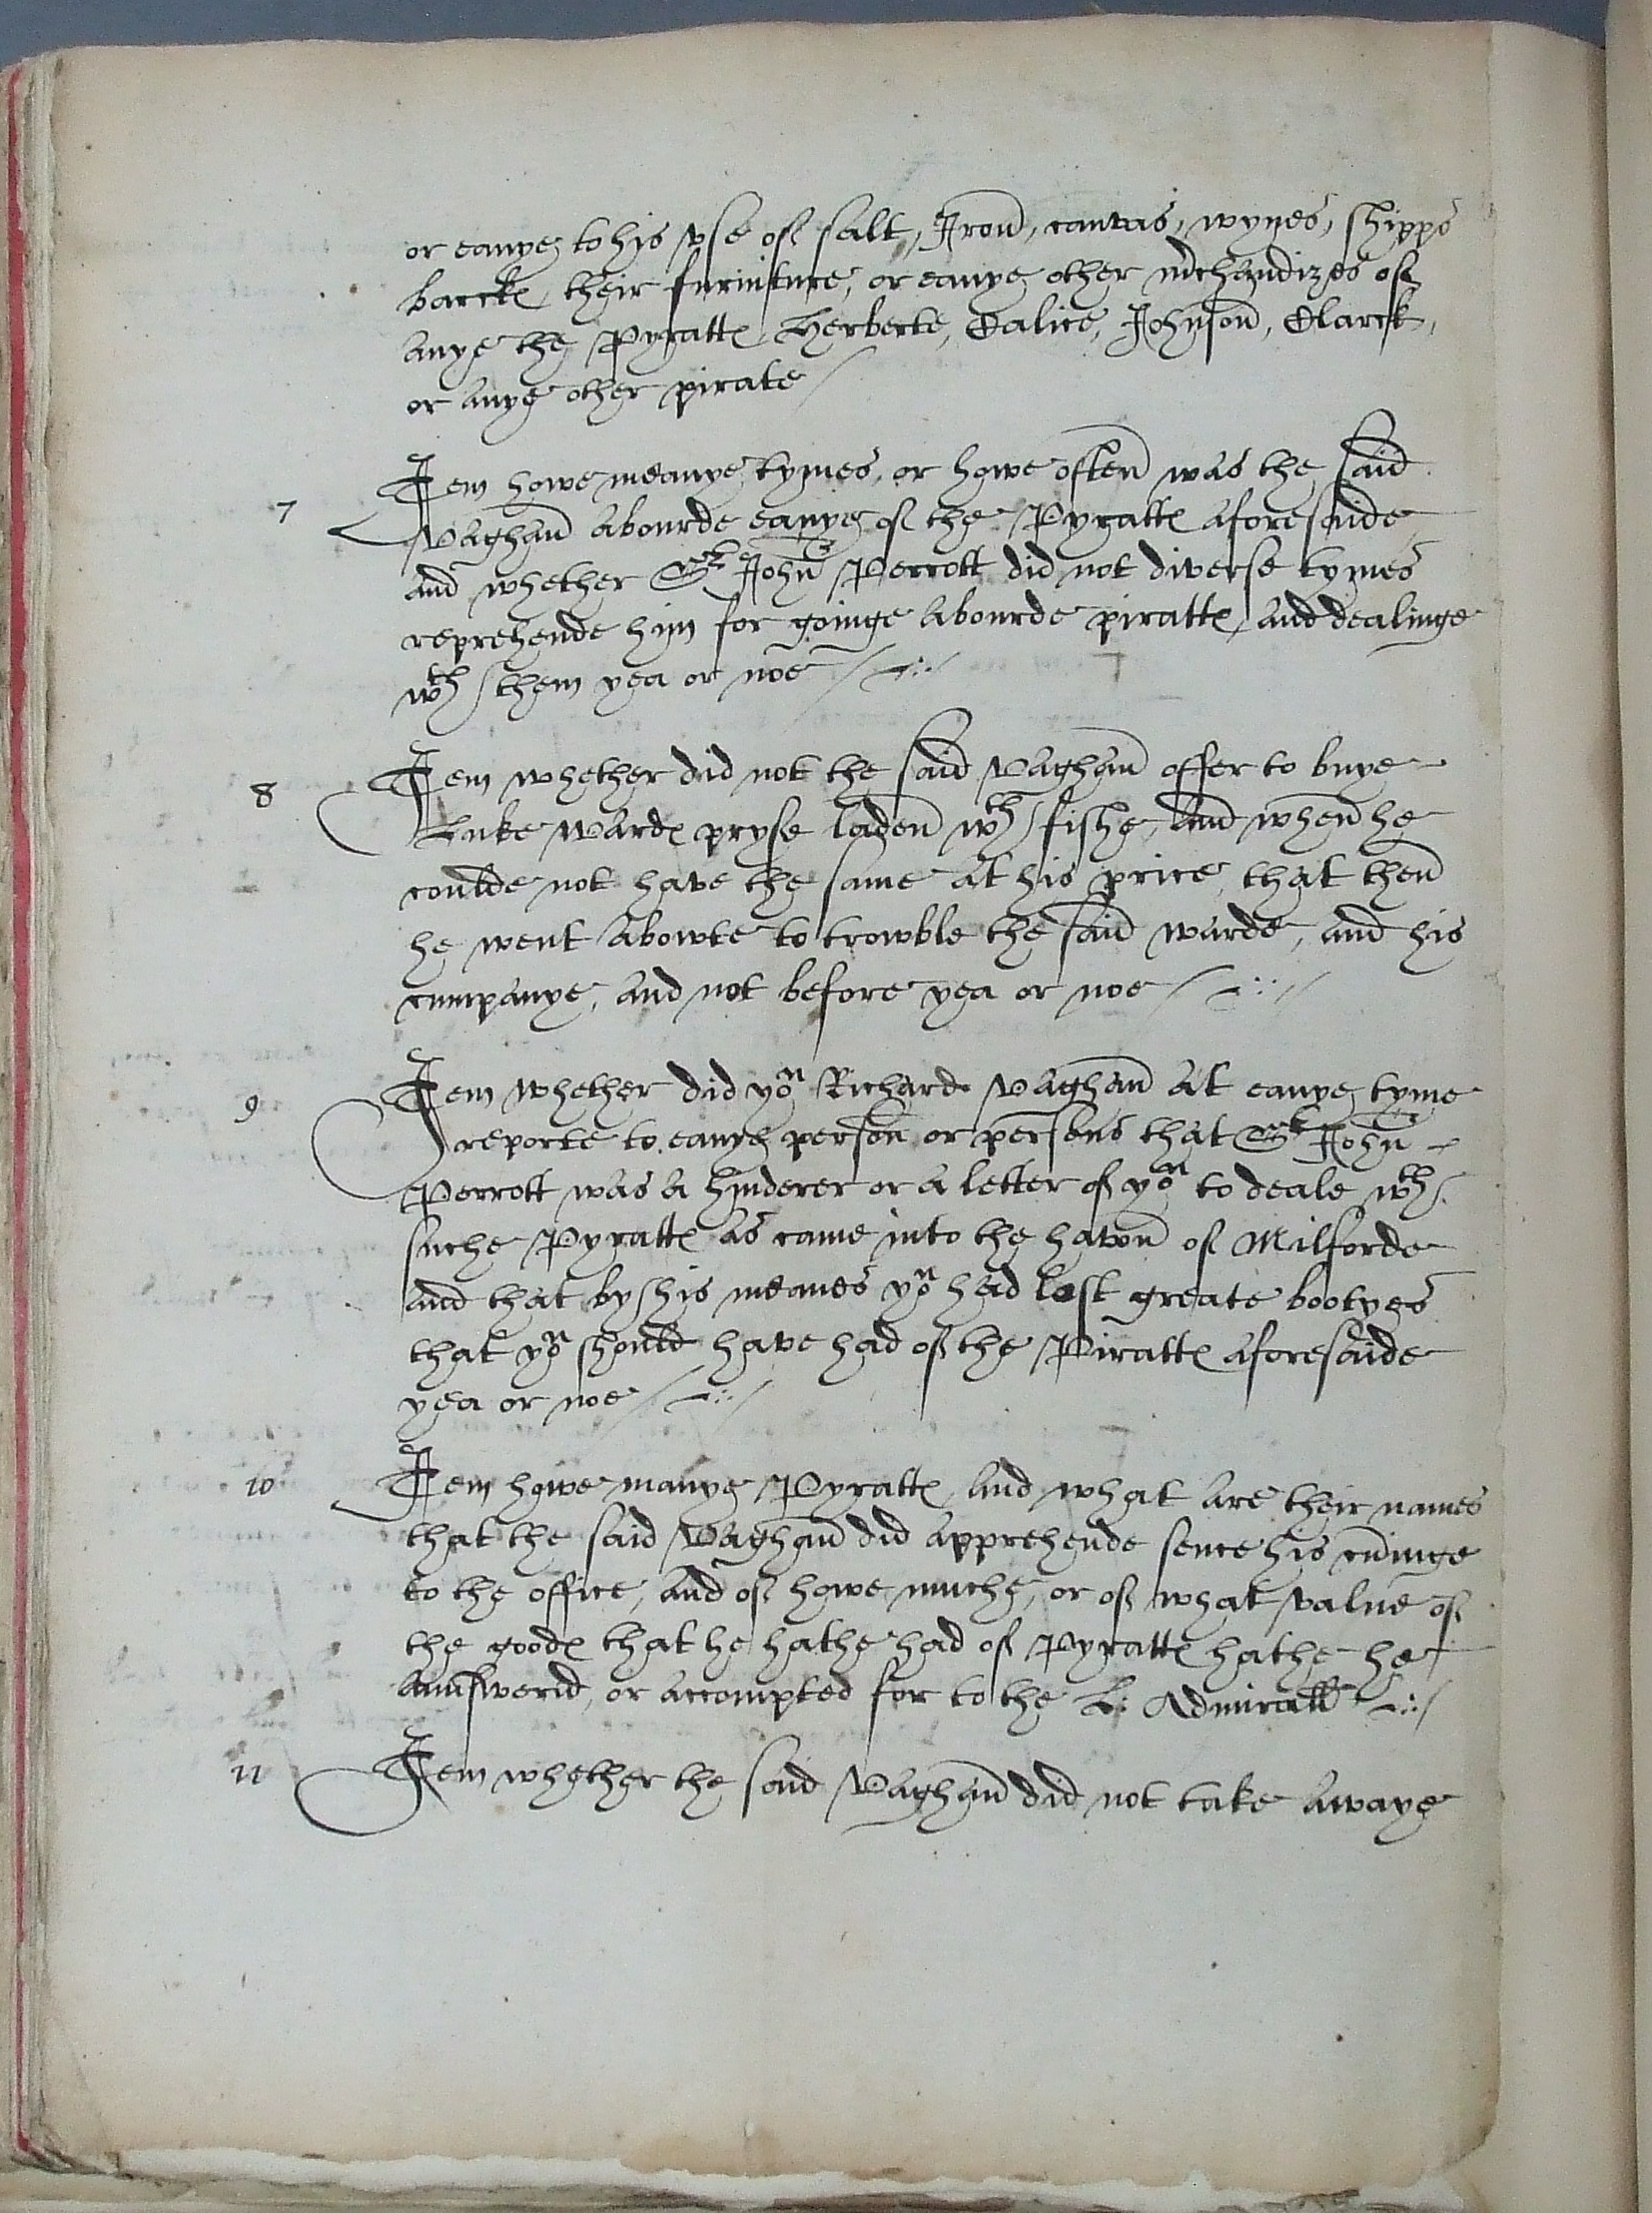 or eanye to his vse of salt, Iron, canvas, wynes, shipps
barckes their furniture, or eanye other mchandizes of
anye the Pyrattes Herberte, Calice, Johnson, Clarck,
or anye other pirate /
7 Itm howe meanye tymes, or howe often was the said
Vaghan abourde eanye of the Pyrattes aforesaide
and whether Sr John Perrott did not diverse tymes
reprehende him for goinge abourde pirattes, and dealinge
wth them yea or noe /
8 Itm whether did not the said Vaghan offer to buye
Luke Wardes pryse laden wth fishe, and when he
coulde not have the same at his price, that then
he went abowte to trowble the said warde, and his
cumpanye, and not before yea or noe /
9 Itm whether did you Richard Vaghan at eanye tyme
reporte to eanye person or persons that Sr John
Perrott was a hinderer or a letter of you to deale wth
suche Pyrattes as came into the haven of Milforde
and that by his meanes you had lost greate bootyes
that you should have had of the Pirattes aforesaide
yea or noe /
10 Itm howe manye Pyrattes, and what are their names
that the said Vaghan did apprehende sence his cminge
to the office, and of howe muche, or of what value of
the goodes that he hathe had of Pyrattes hathe he
aunswerid, or accompted for to the L: Admirall
11 Itm whether the said Vaghan did not take awaye